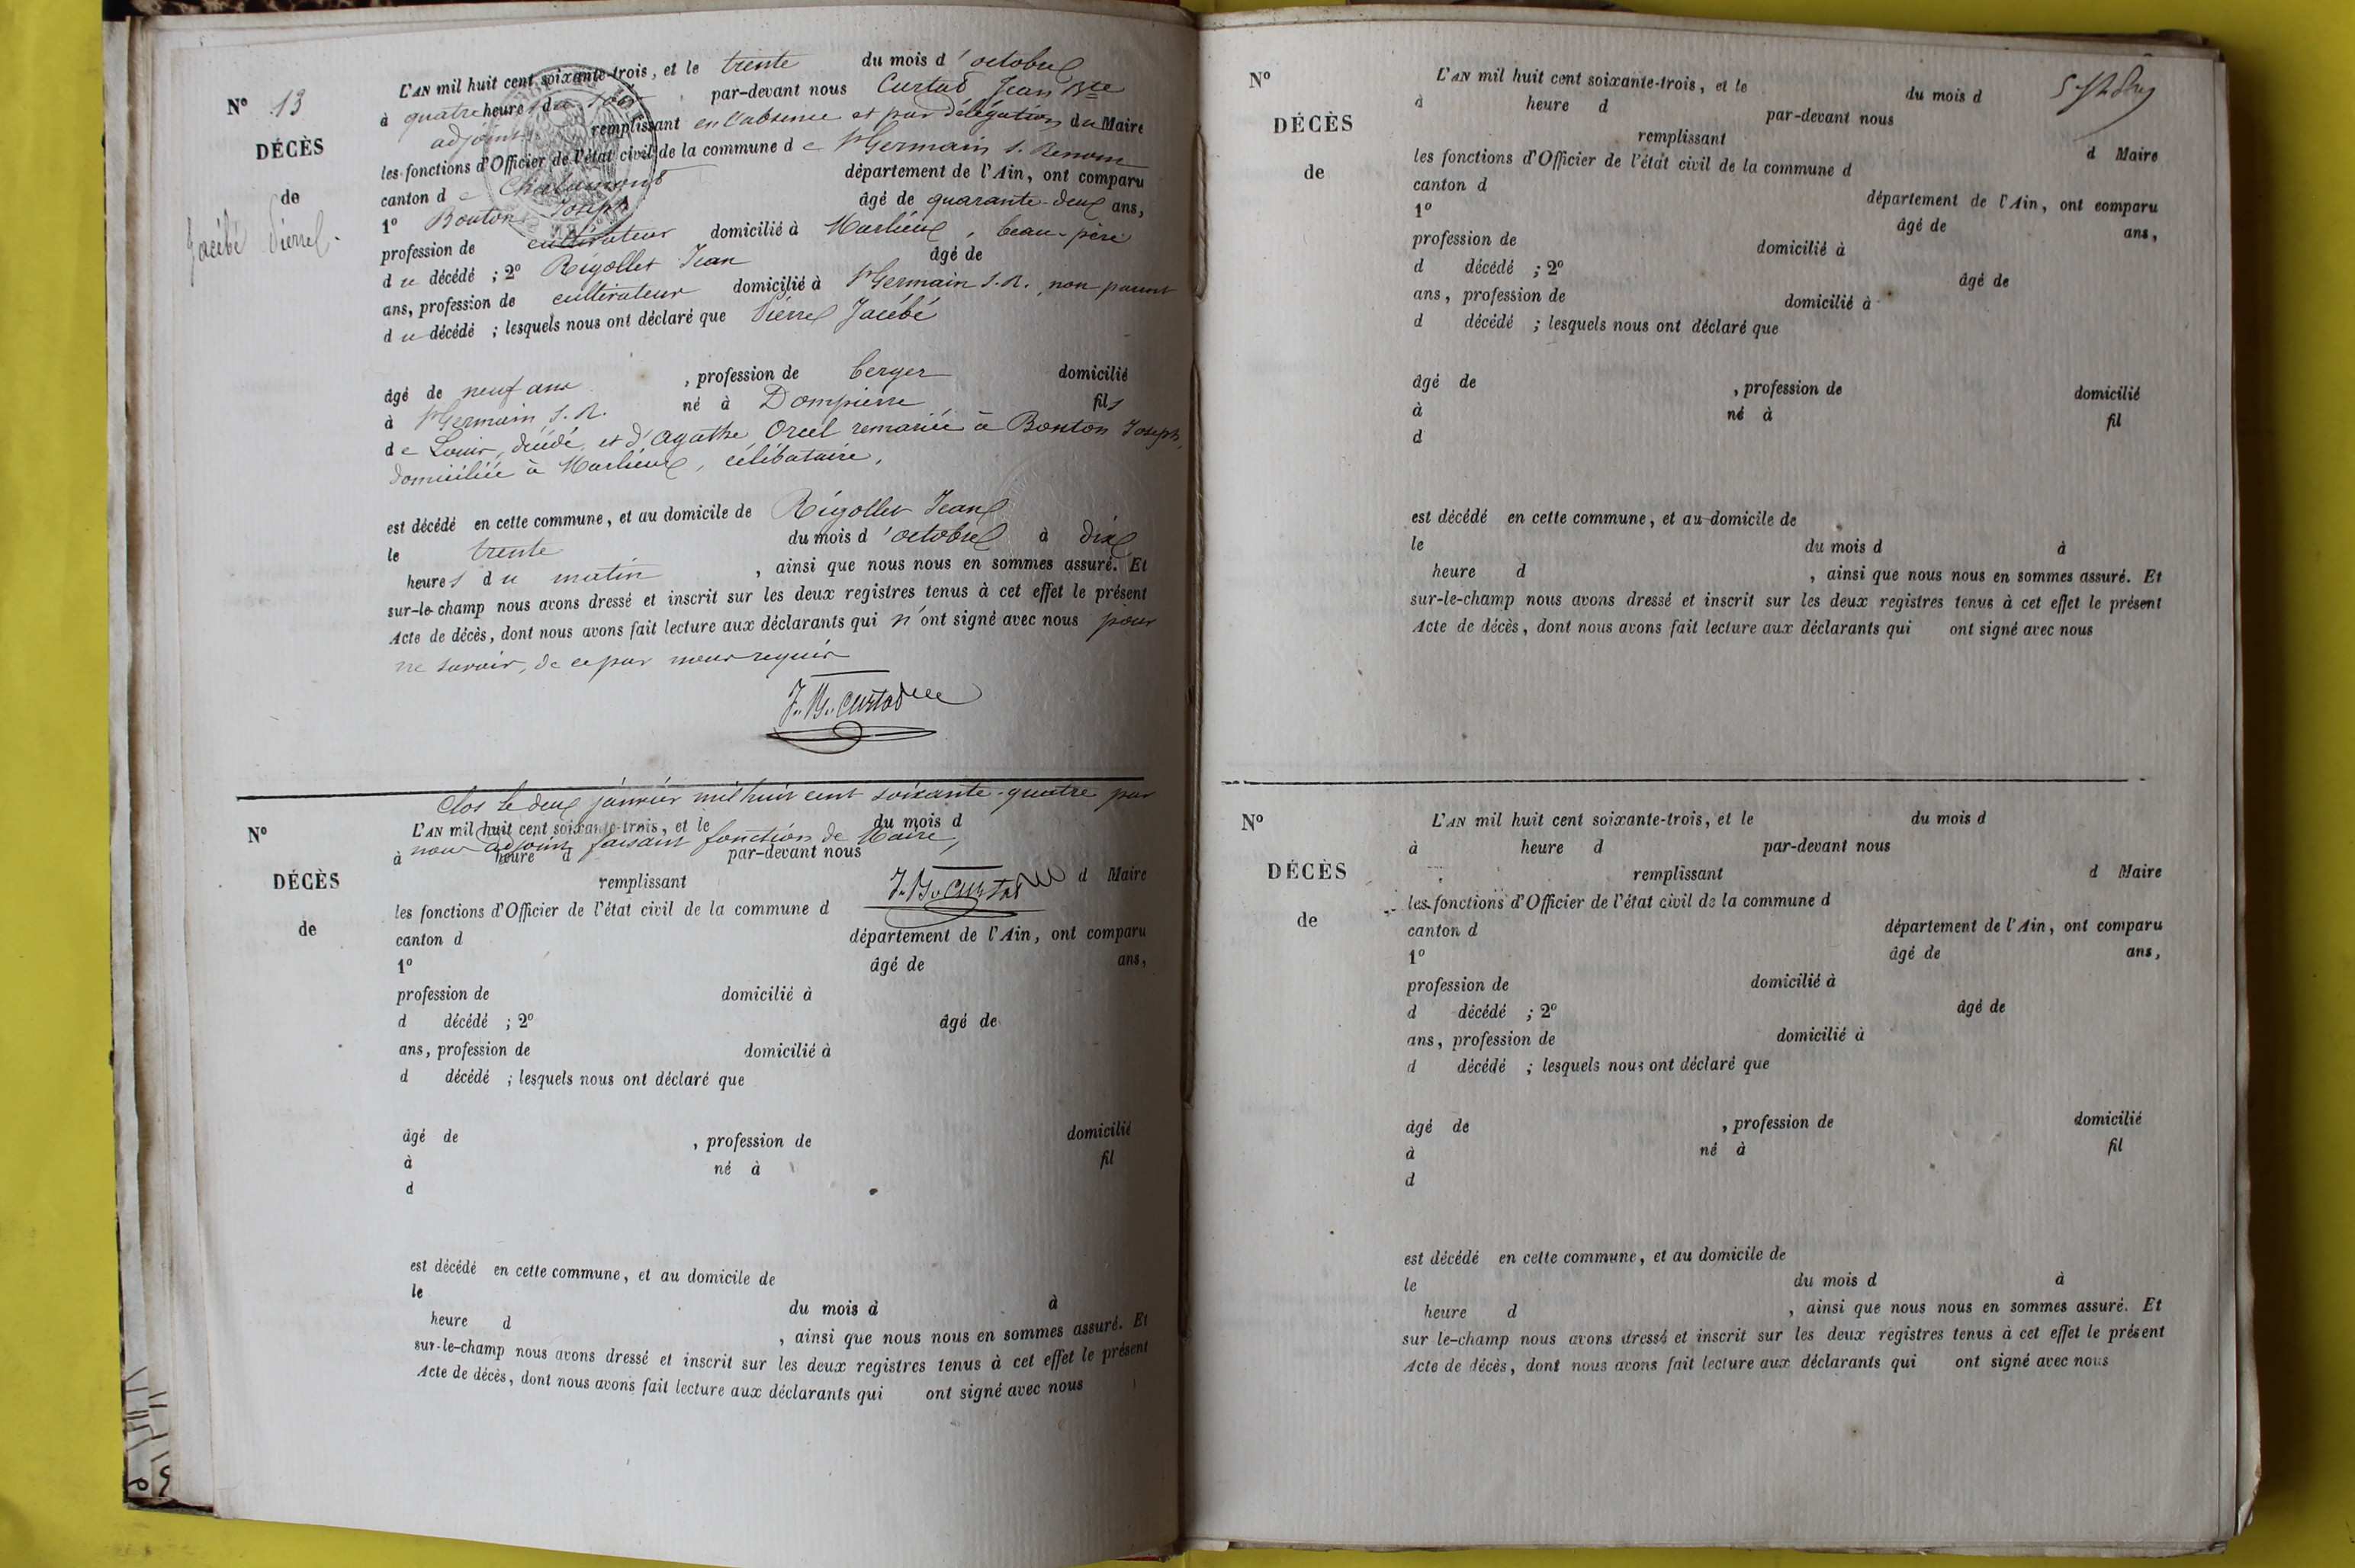 N° 13
DÉCÈS
de
Jacébé Pierre.
L'AN mil huit cent soixante-trois, et le trente du mois d'octobre
à quatre heures du soir, par-devant nous Curtad Jean Bte
adjoint remplissant en l'absence et par délégation du Maire
les fonctions d'Officier de l'état civil de la commune de St Germain s. Renom
canton de Chalamont département de l'Ain, ont comparu
1° Bouton Joseph âgé de quarante-deux ans,
profession de cultivateur domicilié à Marlieux, beau-père
du décédé ; 2° Rigollet Jean âgé de
ans, profession de cultivateur domicilié à St Germain S. R. non parent
du décédé ; lesquels nous ont déclaré que Pierre Jacébé
âgé de neuf ans, profession de berger domicilié
à St Germain S. R. né à Dompierre fils
de Louis, décédé, et d'Agathe Orcel remariée à Bouton Joseph,
domiciliée à Marlieux, célibataire,
est décédé en cette commune, et au domicile de Rigollet Jean
le trente du mois d'octobre à dix
heures du matin, ainsi que nous nous en sommes assuré. Et
sur-le-champ nous avons dressé et inscrit sur les deux registres tenus à cet effet le présent
Acte de décès, dont nous avons fait lecture aux déclarants qui n'ont signé avec nous pour
ne savoir, de ce par nous requis
J. B. Curtad
Clos le deux janvier mil huit cent soixante-quatre par
nous adjoint faisant fonction de Maire,
J. B. Curtad
N°
DÉCÈS
de
L'AN mil huit cent soixante-trois, et le du mois d
à heure d par-devant nous
remplissant d Maire
les fonctions d'Officier de l'état civil de la commune d
canton d département de l'Ain, ont comparu
1° âgé de ans,
profession de domicilié à
d décédé ; 2° âgé de
ans, profession de domicilié à
d décédé ; lesquels nous ont déclaré que
âgé de , profession de domicilié
à né à fil
d
est décédé en cette commune, et au domicile de
le du mois d à
heure d , ainsi que nous nous en sommes assuré. Et
sur-le-champ nous avons dressé et inscrit sur les deux registres tenus à cet effet le présent
Acte de décès, dont nous avons fait lecture aux déclarants qui ont signé avec nous
N°
DÉCÈS
de
L'AN mil huit cent soixante-trois, et le du mois d
à heure d par-devant nous
remplissant d Maire
les fonctions d'Officier de l'état civil de la commune d
canton d département de l'Ain, ont comparu
1° âgé de ans,
profession de domicilié à
d décédé ; 2° âgé de
ans, profession de domicilié à
d décédé ; lesquels nous ont déclaré que
âgé de , profession de domicilié
à né à fil
d
est décédé en cette commune, et au domicile de
le du mois d à
heure d , ainsi que nous nous en sommes assuré. Et
sur-le-champ nous avons dressé et inscrit sur les deux registres tenus à cet effet le présent
Acte de décès, dont nous avons fait lecture aux déclarants qui ont signé avec nous
N°
DÉCÈS
de
L'AN mil huit cent soixante-trois, et le du mois d
à heure d par-devant nous
remplissant d Maire
les fonctions d'Officier de l'état civil de la commune d
canton d département de l'Ain, ont comparu
1° âgé de ans,
profession de domicilié à
d décédé ; 2° âgé de
ans, profession de domicilié à
d décédé ; lesquels nous ont déclaré que
âgé de , profession de domicilié
à né à fil
d
est décédé en cette commune, et au domicile de
le du mois d à
heure d , ainsi que nous nous en sommes assuré. Et
sur le-champ nous avons dressé et inscrit sur les deux registres tenus à cet effet le présent
Acte de décès, dont nous avons fait lecture aux déclarants qui ont signé avec nous